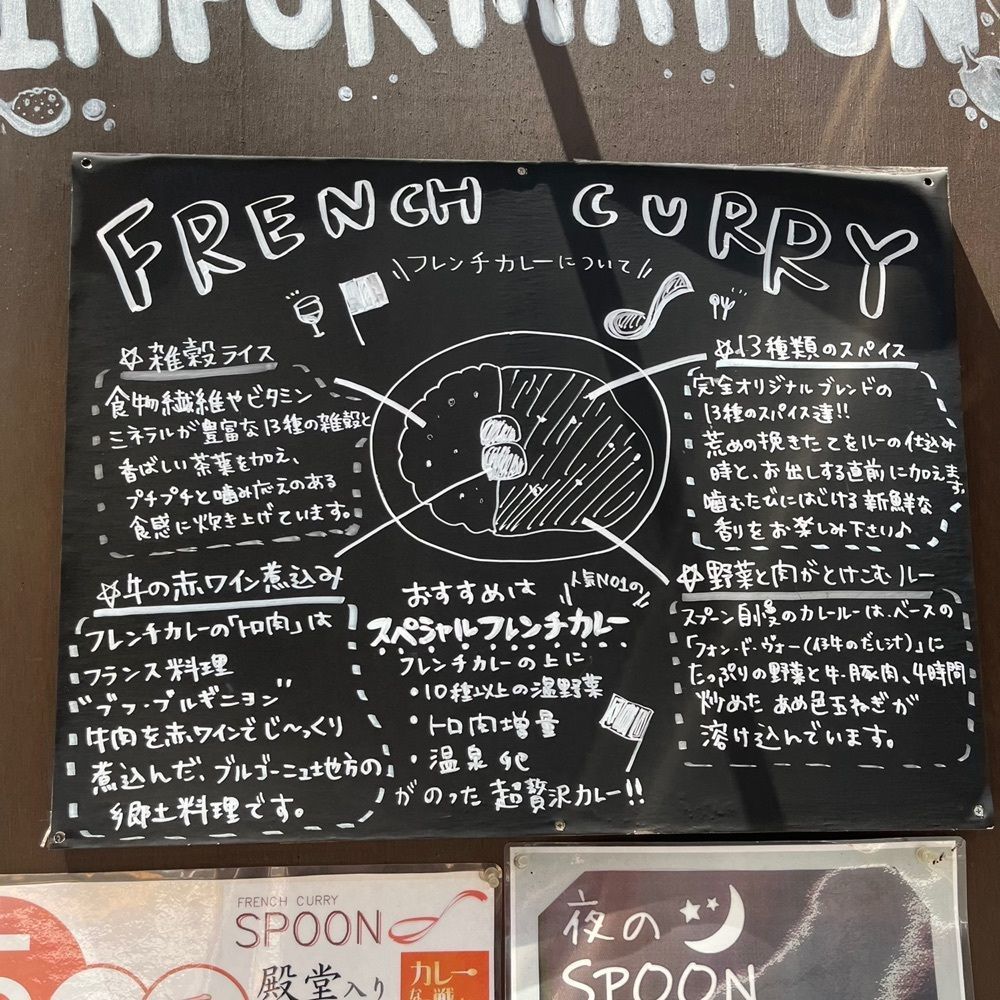 INFORMATION
FRENCH CURRY
\\フレンチカレーについて//
☆雑穀ライス
食物繊維やビタミン
ミネラルが豊富な13種の雑穀と
香ばしい茶葉を加え、
プチプチと噛み応えのある
食感に炊き上げています。
☆13種類のスパイス
完全オリジナルブレンドの
13種のスパイス達!!
荒めの挽きたてをルーの仕込み
時と、お出しする直前に加えます。
噛むたびにはじける新鮮な
香りをお楽しみ下さい♪
☆牛の赤ワイン煮込み
フレンチカレーの「トロ肉」は
フランス料理
"ブフ・ブルギニヨン"
牛肉を赤ワインでじ〜っくり
煮込んだ、ブルゴーニュ地方の
郷土料理です。
おすすめは
\\人気NO1の//
スペシャルフレンチカレー
フレンチカレーの上に
・10種以上の温野菜
・トロ肉増量
・温泉
がのった超贅沢カレー!!
☆野菜と肉がとけこむルー
スプーン自慢のカレールーは、ベースの
「フォン・ド・ヴォー(仔牛のだし汁)」に
たっぷりの野菜と牛、豚肉、4時間
炒めたあめ色玉ねぎが
溶け込んでいます。
FRENCH CURRY
SPOON
殿堂入り
カレー
夜の
SPOON